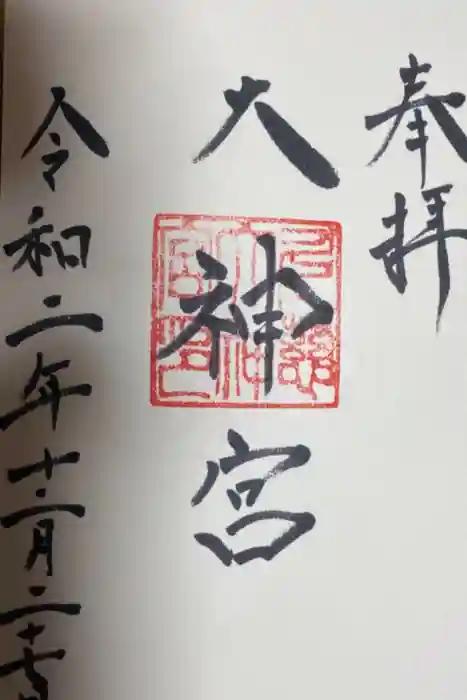 奉拝
大神宮
令和二年十二月二十